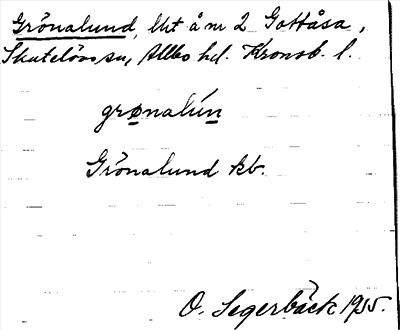 Grönalund, lht å nr 2 Gottåsa,
Skatelövs sn, Allbo hd. Kronob. l.
grønalún
Grönalund kb.
O. Segerbäck 1935.